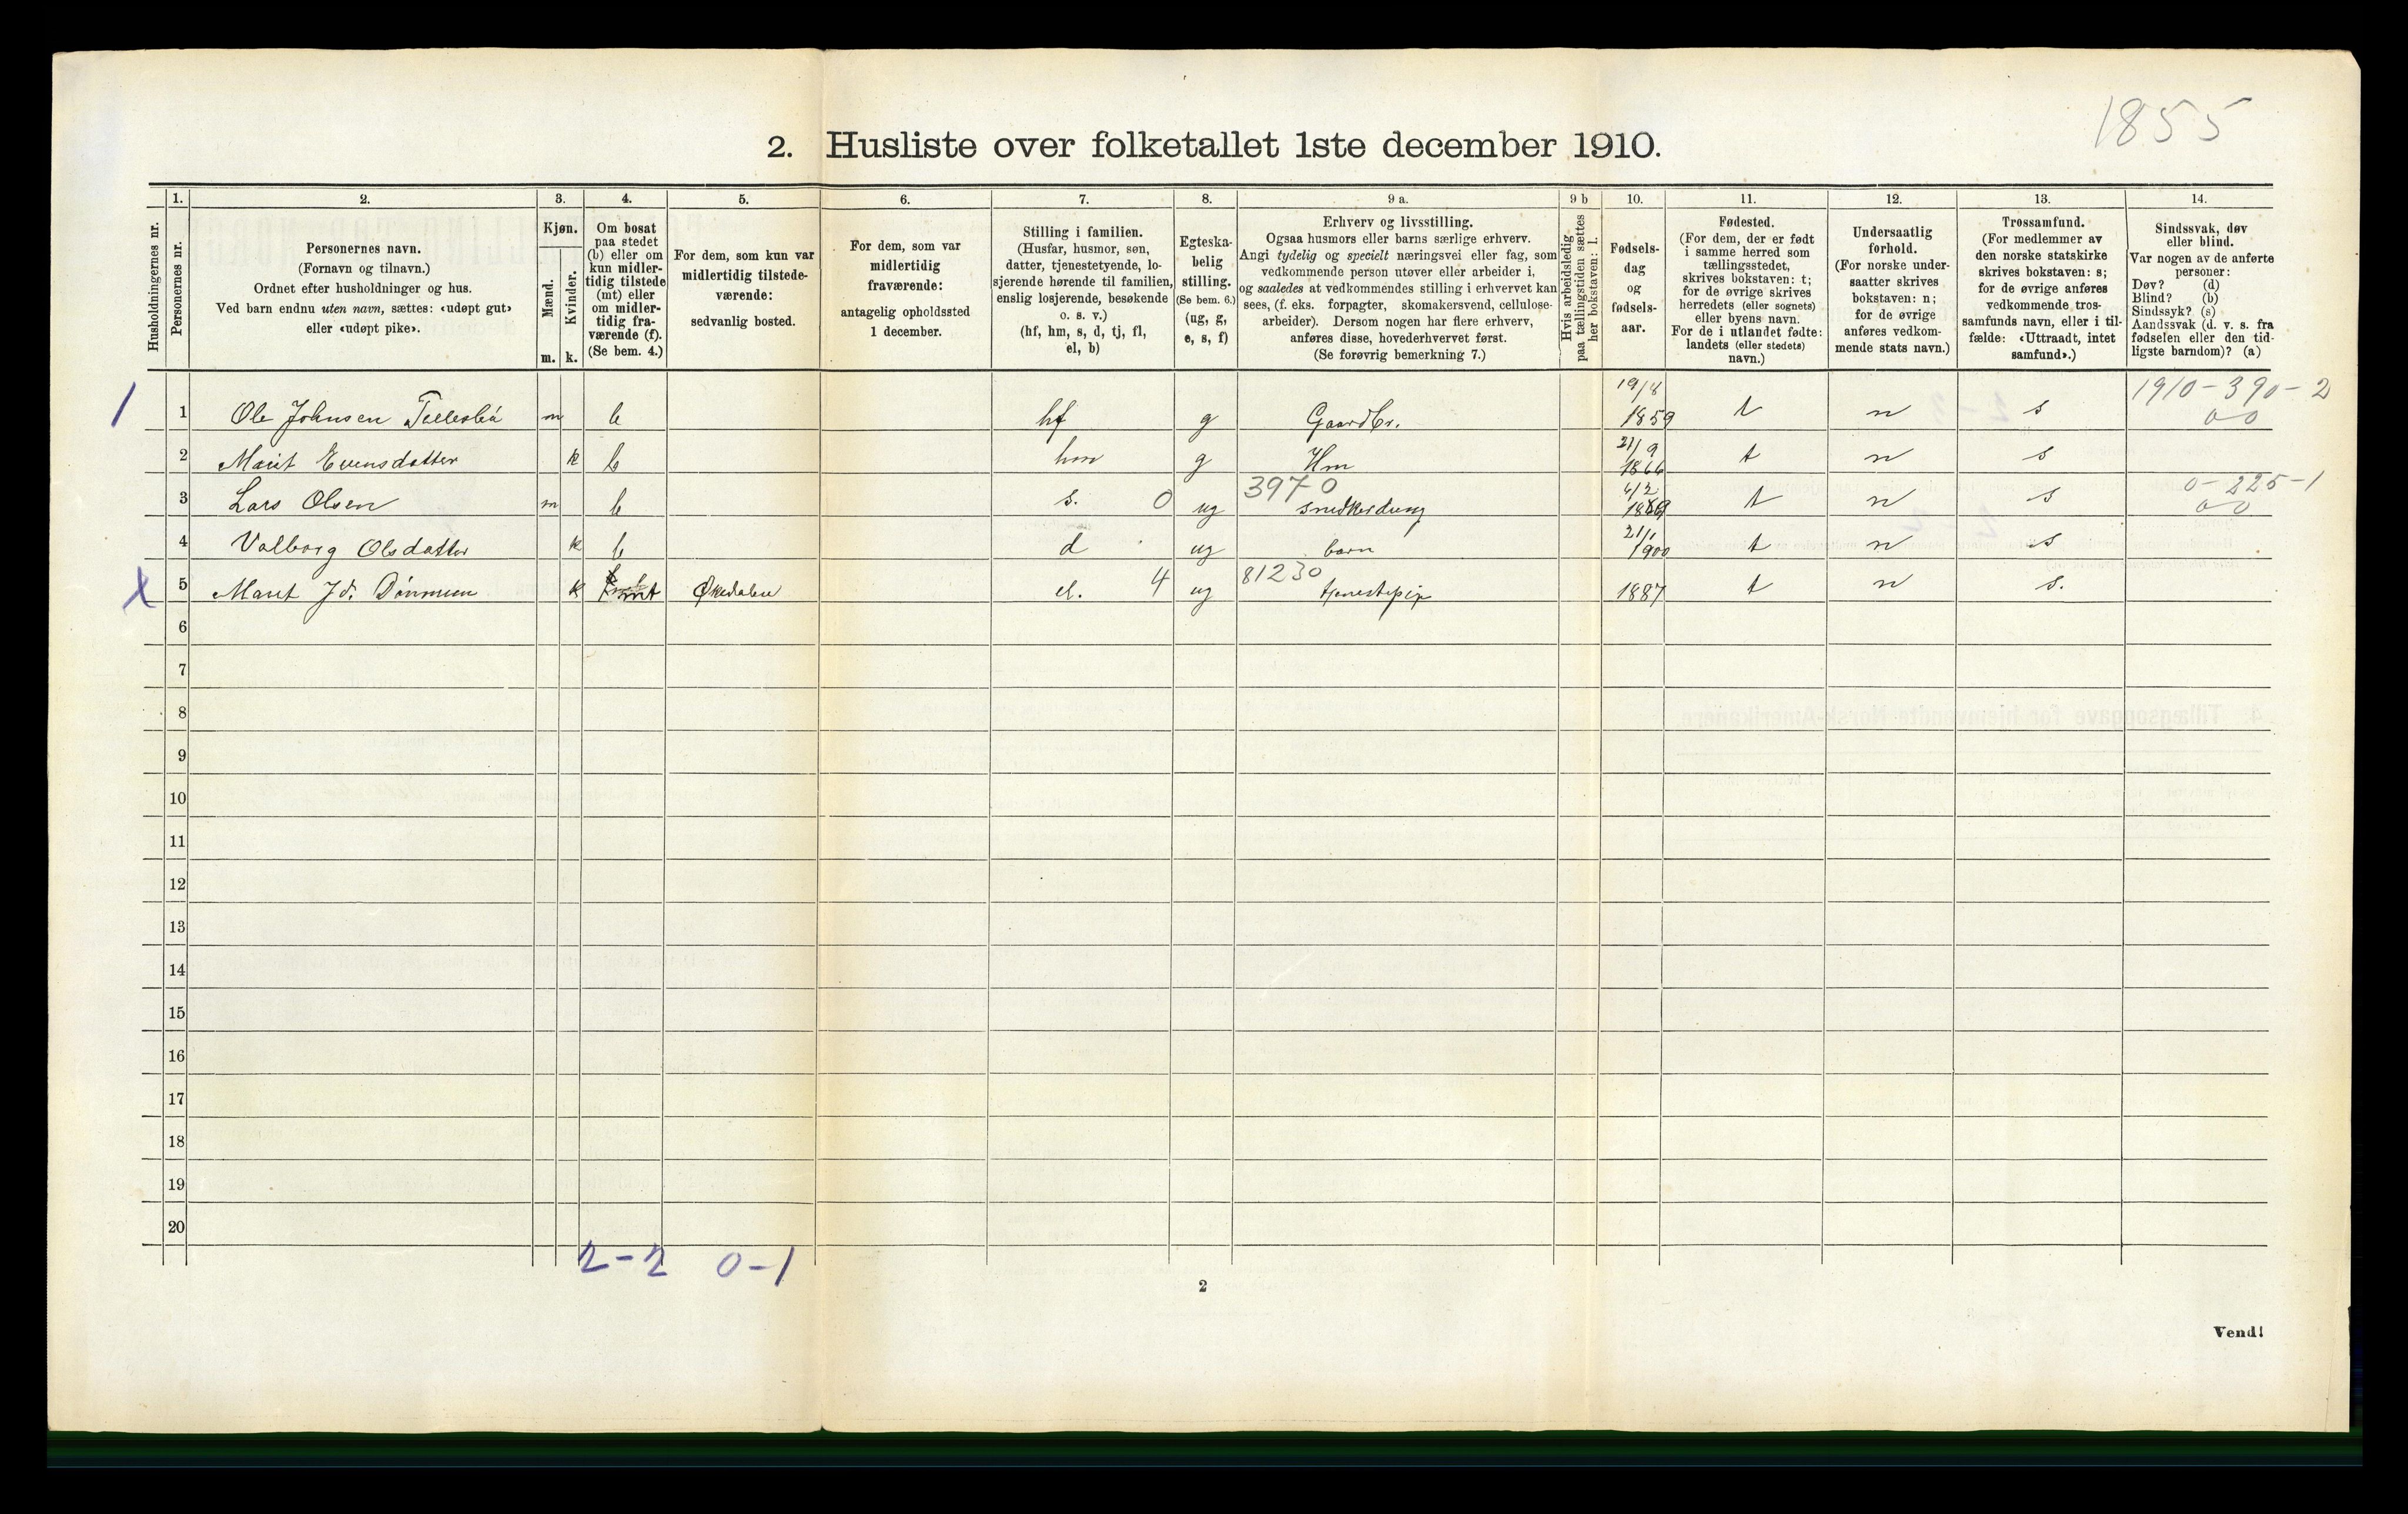 1855
2. Husliste over folketallet 1ste december 1910.
Husholdningernes nr.
1.
Personernes nr.
2.
Personernes navn.
(Fornavn og tilnavn.)
Ordnet efter husholdninger og hus.
Ved barn endnu uten navn, sættes: «udøpt gut»
eller «udøpt pike».
3.
Kjøn.
Mænd.
Kvinder.
m. k.
4.
Om bosat
paa stedet
(b) eller om
kun midler-
tidig tilstede
(mt) eller
om midler-
tidig fra-
værende (f).
(Se bem. 4.)
5.
For dem, som kun var
midlertidig tilstede-
værende:
sedvanlig bosted.
6.
For dem, som var
midlertidig
fraværende:
antagelig opholdssted
1 december.
7.
Stilling i familien.
(Husfar, husmor, søn,
datter, tjenestetyende, lo-
sjerende hørende til familien,
enslig losjerende, besøkende
o. s. v.)
(hf, hm, s, d, tj, fl,
el, b)
8.
Egteska-
belig
stilling.
(Se bem. 6.)
(ug, g,
e, s, f)
9 a.
Erhverv og livsstilling.
Ogsaa husmors eller barns særlige erhverv.
Angi tydelig og specielt næringsvei eller fag, som
vedkommende person utøver eller arbeider i,
og saaledes at vedkommendes stilling i erhvervet kan
sees, (f. eks. forpagter, skomakersvend, cellulose-
arbeider). Dersom nogen har flere erhverv,
anføres disse, hovederhvervet først.
(Se forøvrig bemerkning 7.)
9 b
Hvis arbeidsledig
paa tællingstiden sættes
her bokstaven: l.
10.
Fødsels-
dag
og
fødsels-
aar.
11.
Fødested.
(For dem, der er født
i samme herred som
tællingsstedet,
skrives bokstaven: t;
for de øvrige skrives
herredets (eller sognets)
eller byens navn.
For de i utlandet fødte:
landets (eller stedets)
navn.)
12.
Undersaatlig
forhold.
(For norske under-
saatter skrives
bokstaven: n;
for de øvrige
anføres vedkom-
mende stats navn.)
13.
Trossamfund.
(For medlemmer av
den norske statskirke
skrives bokstaven: s;
for de øvrige anføres
vedkommende tros-
samfunds navn, eller i til-
fælde: «Uttraadt, intet
samfund».)
14.
Sindssvak, døv
eller blind.
Var nogen av de anførte
personer:
Døv? (d)
Blind? (b)
Sindssyk? (s)
Aandssvak (d. v. s. fra
fødselen eller den tid-
ligste barndom)? (a)
1 1 Ole Johnsen m b hf g Gaardbr. 19/8 1859 t n s 1910-390-2 00
2 Marit Evensdatter k b hm g Hm 21/9 1866 t n s
3 Lars Olsen m b s. 0 ug 3970 t n s 0-225-1 00
4 Valborg Olsdatter k b d ug barn 21/1 1900 t n s
x 5 Marit Jd. k mt Økdalen el. 4 ug 81230 1887 t n s.
6
7
8
9
10
11
12
13
14
15
16
17
18
19
20
2-2 0-1
2
Vend!